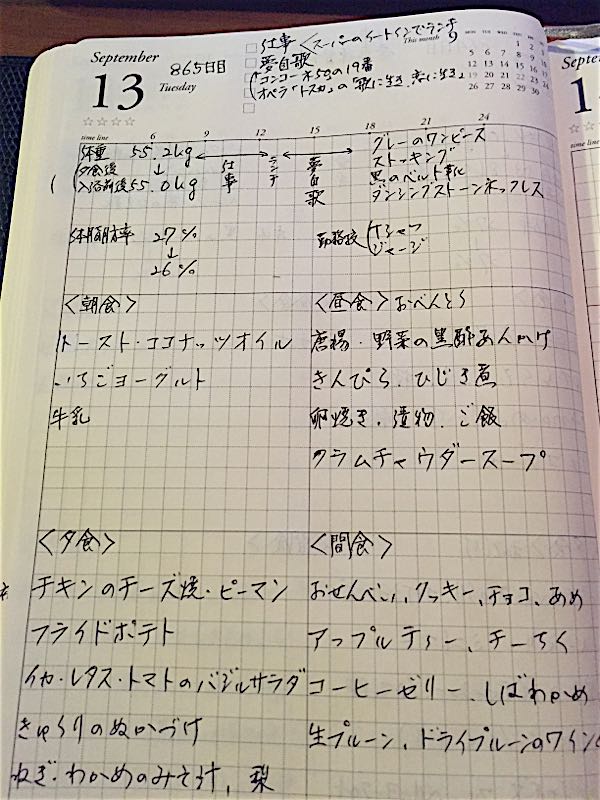 September
13
Tuesday
865日目
仕事〈スーパーのイートインでランチ
夢自歌
コンコーネ55の19番
オペラ「トスカ」の「歌に生き、恋に生き」
This month 9
MON TUE WED THU FRI SAT SUN
1 2 3 4
5 6 7 8 9 10 11
12 13 14 15 16 17 18
19 20 21 22 23 24 25
26 27 28 29 30
time line 6 9 12 15 18 21 24
体重 55.2kg
夕食後 ↓
入浴前後 55.0kg
仕事
ランチ
夢自歌
グレーのワンピース
ストッキング
黒のベルト
ダンシングストーンネックレス
体脂肪率 27%
↓
26%
勤務校(Tシャツ
ジャージ
〈朝食〉
トースト・ココナッツオイル
いちごヨーグルト
牛乳
〈昼食〉おべんとう
唐揚・野菜の黒酢あんかけ
きんぴら、ひじき煮
卵焼き、漬物、ご飯
クラムチャウダースープ
〈夕食〉
チキンのチーズ焼・ピーマン
フライドポテト
イカ・レタス・トマトのバジルサラダ
きゅうりのぬかづけ
ねぎ・わかめのみそ汁、梨
〈間食〉
おせんべい、クッキー、チョコ、あめ
アップルティー、チーちく
コーヒーゼリー、しばわかめ
生プルーン、ドライプルーンのワイン
Septe
1